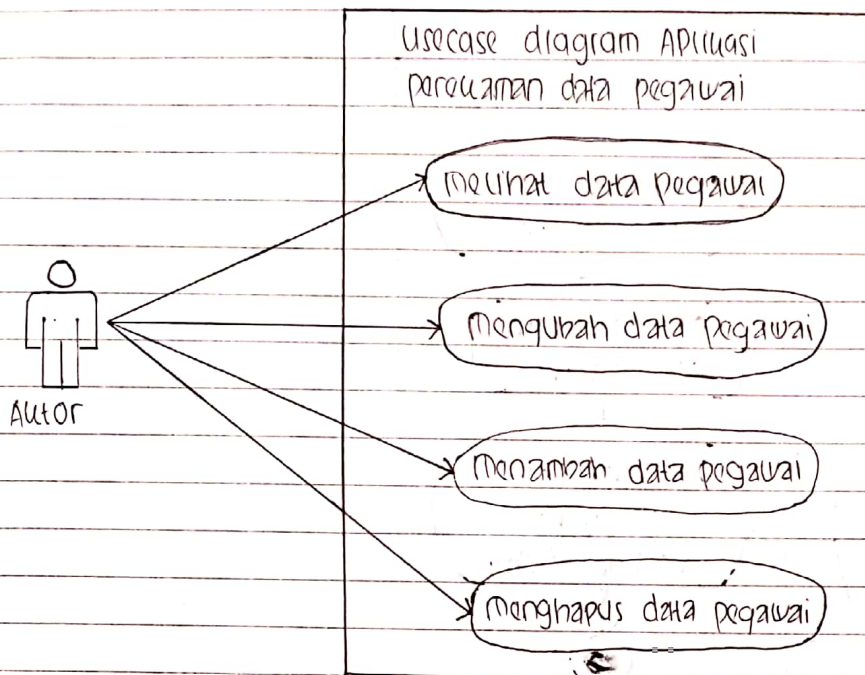 Usecase diagram Aplikasi
perekaman data pegawai
melihat data pegawai
mengubah data pegawai
Autor
menambah data pegawai
menghapus data pegawai